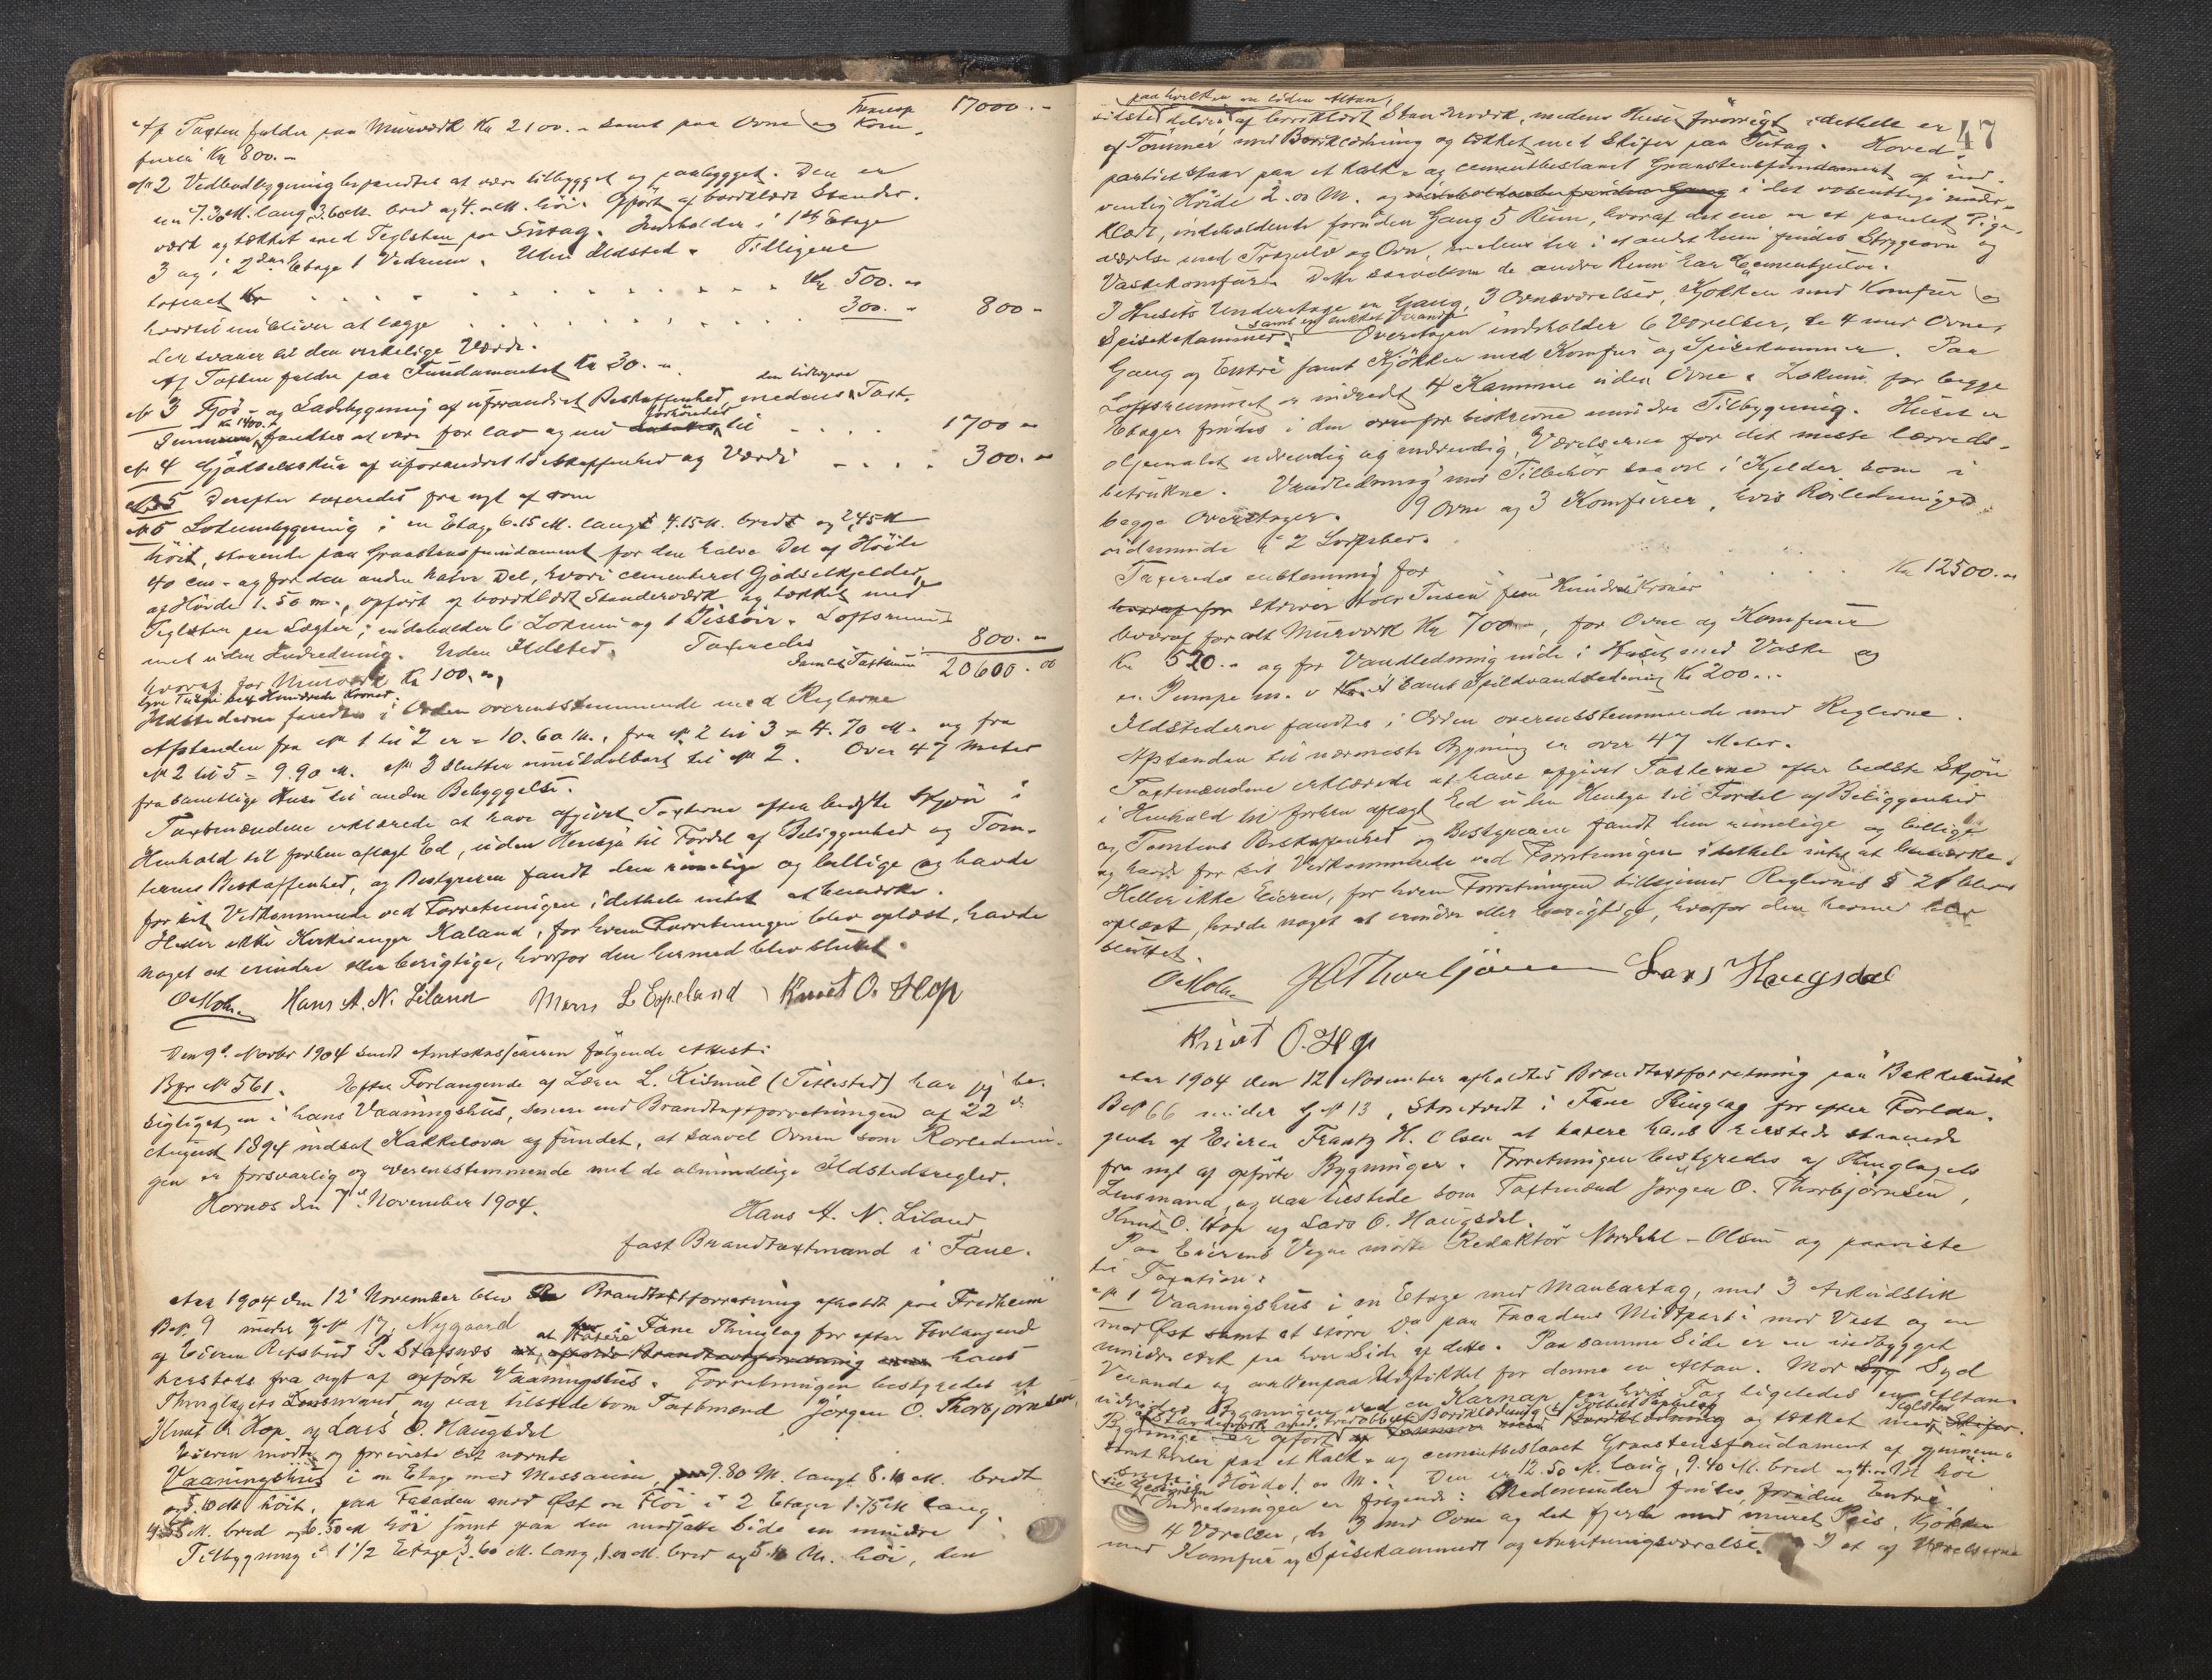 Transp. 17000.-
Af Taxten falder paa Murværk Kr 2100.- samt paa Ovne og Kom-
furer Kr 800.-
No 2 Vedbodbygning befandtes at være tilbygget og paabygget. Den er
nu 7.30 M. lang, 3.60 M. bred og 4. M. høi. Opført af bordklædt Stander-
værk og tækket med Teglsten paa Sutag. Indeholder i 1ste Etage
3 og i 2den Etage 1 Vedrum. Uden Ildsted. Tidligere
taxeret Kr . . . . . Kr. 500.-
hvortil nu bliver at lægge . . . . . 300.- 800-
der svarer til den virkelige Værdi.
Af Taxten falder paa Fundamentet Kr 30.-
No 3 Fjøs- og Ladebygning af uforandret Beskaffenhed, medens den tidligere Taxt-
Sum Kr 1400.- fandtes at være for lav og nu forhøiedes til . . . . 1700-
No 4 Gjødselsskur af uforandret Beskaffenhed og Værdi . . . . 300.-
Derefter taxeredes fra nyt af som
No 5 Lokumbygning i en Etage 6.15 M. langt 4.15 M. bredt og 2,45 M
høit, staaende paa Graastensfundament for den halve Del af Høide
40 cm. og for den anden halve Del, hvori cementeret Gjødselkjelder,
af Høide 1.50 m., opført af bordklædt Standerværk og tækket med
Teglsten paa Lægter; indeholder 6 Lokum og 1 Pissoir. Loftsrum-
met uden Indredning. Uden Ildsted. Taxeredes 800.-
hvoraf for Murværk Kr 100.-, Samlet Taxtsum 20600.00
tyve Tusen sex Hundrede Kroner.
Ildstederne fandtes i Orden overensstemmende med Reglerne
Afstanden fra No 1 til 2 er = 10.60 M., fra No 2 til 3 = 4.70 M. og fra
No 2 til 5 = 9.90 M. No 3 slutter umiddelbart til No 2. Over 47 Meter
fra samtlige Huse til anden Bebyggelse.
Taxtmændene erklærede at have afgivet Taxterne efter bedste Skjøn i
Henhold til forhen aflagt Ed, uden Hensyn til Fordel af Beliggenhed og Tom-
ternes Beskaffenhed, og Bestyreren fandt dem rimelige og billige og havde
for sit Vedkommende ved Forretningen idethele intet at bemærke.
Heller ikke Kirkesanger Kaland, for hvem Forretningen blev oplæst, havde
noget at erindre eller berigtige, hvorfor den hermed blev sluttet.
Hans A. N. Liland Mons L Espeland Knut O. Hop
Den 9de Novbr 1904 sendt Amtskassereren følgende Attest:
Bfr No 561. Efter Forlangende af Lærer L. Kismul (Titlestad) har jeg be-
sigtiget en i hans Vaaningshus, senere end Brandtaxtforretningen af 22de
August 1894 indsat Kakkelovn og fundet, at saavel Ovnen som Rørlednin-
gen er forsvarlig og overensstemmende med de almindelige Ildstedsregler.
Hornæs den 7de November 1904.
Hans A. N. Liland
fast Brandtaxtmand i Fane.
Aar 1904 den 12te November blev Brandtaxtforretning afholdt paa Fredheim
Bno 9 under Gno 17, Nygaard i Fane Thinglag for efter Forlangende
af Eieren P. Stafsnæs at taxere hans
hersteds fra nyt af opførte Vaaningshus. Forretningen bestyredes af
Thinglagets Lensmand, og var tilstede som Taxtmænd Jørgen O. Thorbjørnsen,
Knut O. Hop og Lars O. Haugsdal
Eieren mødte og foreviste sit nævnte
Vaaningshus i en Etage med Messanin, 9.80 M. langt 8.10 M. bredt
og 5.10 M. høit, paa Fasaden mod Øst en Fløi i 2 Etager 1.75 M lang,
4.55 M. bred og 6.50 M høi samt paa den modsatte Side en mindre
Tilbygning i 1 1/2 Etage, 3.60 M. lang, 1. M. bred og 5.10 M. høi, den
47
paa hvilken en liden Altan,
sidste deles af bordklædt Standerværk, medens Huset forøvrigt idethele er
af Tømmer med Bordklædning og tækket med Skifer paa Sutag. Hoved-
partiet staar paa et kalk- og cementbeslaaet Graastensfundament af ind-
vendig Høide 2.00 M. og i det væsentlige under-
klædt, indeholdende foruden Gang 5 Rum, hvoraf det ene er et panelet Pige-
værelse med Trægulv og Ovn, medens der i et andet Rum findes Strygeovn og
Vaskekomfur. Dette saavelsom de andre Rum har Cementgulve.
I Husets Underetage er Gang, 3 Ovnsværelser, Kjøkken med Komfur og
Spisekammer samt en lukket Veranda. Overetagen indeholder 6 Værelser, de 4 med Ovne,
Gang og Entre samt Kjøkken med Komfur og Spisekammer. Paa
Loftsrummet er indredet 4 Kammere uden Ovne. Lokum for begge
Etager findes i den ovenfor beskrevne mindre Tilbygning. Huset er
oljemalet udvendig og indvendig, Værelserne for det meste lærreds-
betrukne. Vandledning med Tilbehør saavel i Kjelder som i
begge Overetager. 9 Ovne og 3 Komfurer, hvis Rørledninger
udmunde i 2 Løbpiber.
Taxeredes enstemmig for . . . . . Kr 12500.-
skriver tolv Tusen fem Hundrede Kroner
hvoraf for alt Murværk Kr 700.-, for Ovne og Komfurer
Kr 520.- og for Vandledning inde i Huset med Vaske og
en Pumpe m. v. samt Spildvandsledning Kr 200.-.
Ildstederne fandtes i Orden overensstemmende med Reglerne.
Afstanden til nærmeste Bygning er over 47 Meter.
Taxtmændene erklærede at have afgivet Taxterne efter bedste Skjøn
i Henhold til forhen aflagt Ed uden Hensyn til Fordel af Beliggenhed
og Tomtens Beskaffenhed og Bestyreren fandt dem rimelige og billige
og havde for sit Vedkommende ved Forretningen idethele intet at bemærke.
Heller ikke Eieren, for hvem Forretningen tilligemed Reglernes § 21 blev
oplæst, havde noget at erindre eller berigtige, hvorfor den hermed blev
sluttet.
Thorbjörnsen Lars Haugsdal
Knut O. Hop
Aar 1904 den 12 November afholdtes Brandtaxtforretning paa "Bakkehuset"
Bno 66 under Gno 13, Storetvedt i Fane Thinglag for efter Forlan-
gende af Eieren Frantz H. Olsen at taxere hans hersteds staaende
fra nyt af opførte Bygninger. Forretningen bestyredes af Thinglagets
Lensmand, og var tilstede som Taxtmænd Jørgen O. Thorbjørnsen,
Knut O. Hop og Lars O. Haugsdal.
Paa Eierens Vegne mødte Redaktør Nordahl-Olsen og paaviste
til Taxation:
No 1 Vaaningshus i en Etage med Mansartag, med 3 Arkudstik
mod Øst samt et større Do paa Facadens Midtparti mod Vest og en
mindre Ark paa hver Side af dette. Paa samme Side er en indbygget
Veranda og ovenpaa Udstikket for denne en Altan. Mod Syd
udvides Bygningen ved en Karnap, paa hvis Tag ligeledes en Altan.
Bygningen er opført af Standerværk med tredobbelt Bordklædning og dobbelt Papiring og tækket med Teglsten
samt hviler paa et kalk- og cementbeslaaet Graastensfundament af gjennem-
snitlig Høide 1. M. Den er 12.50 M. lang, 9.40 M. bred og 4. M høi
Indredningen er følgende: Nedenunder findes, foruden Entre,
4 Værelser, de 3 med Ovne og det fjerde med muret Peis, Kjøkken
med Komfur og Spisekammer og Anretningsværelse. I et af Værelserne